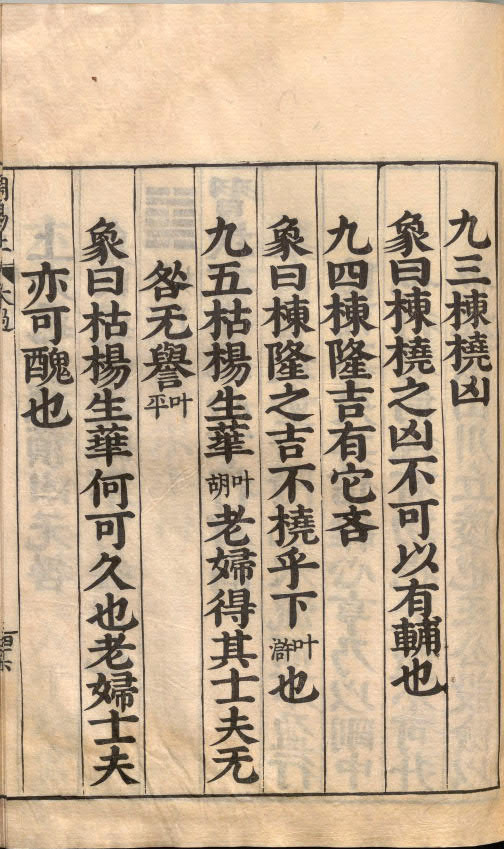 九三棟橈凶
象曰棟橈之凶不可以有輔也
九四棟隆吉有它吝
象曰棟隆之吉不橈乎下叶滸也
九五枯楊生華叶胡老婦得其士夫无
咎无譽叶平
象曰枯楊生華何可久也老婦士夫
亦可醜也
大過